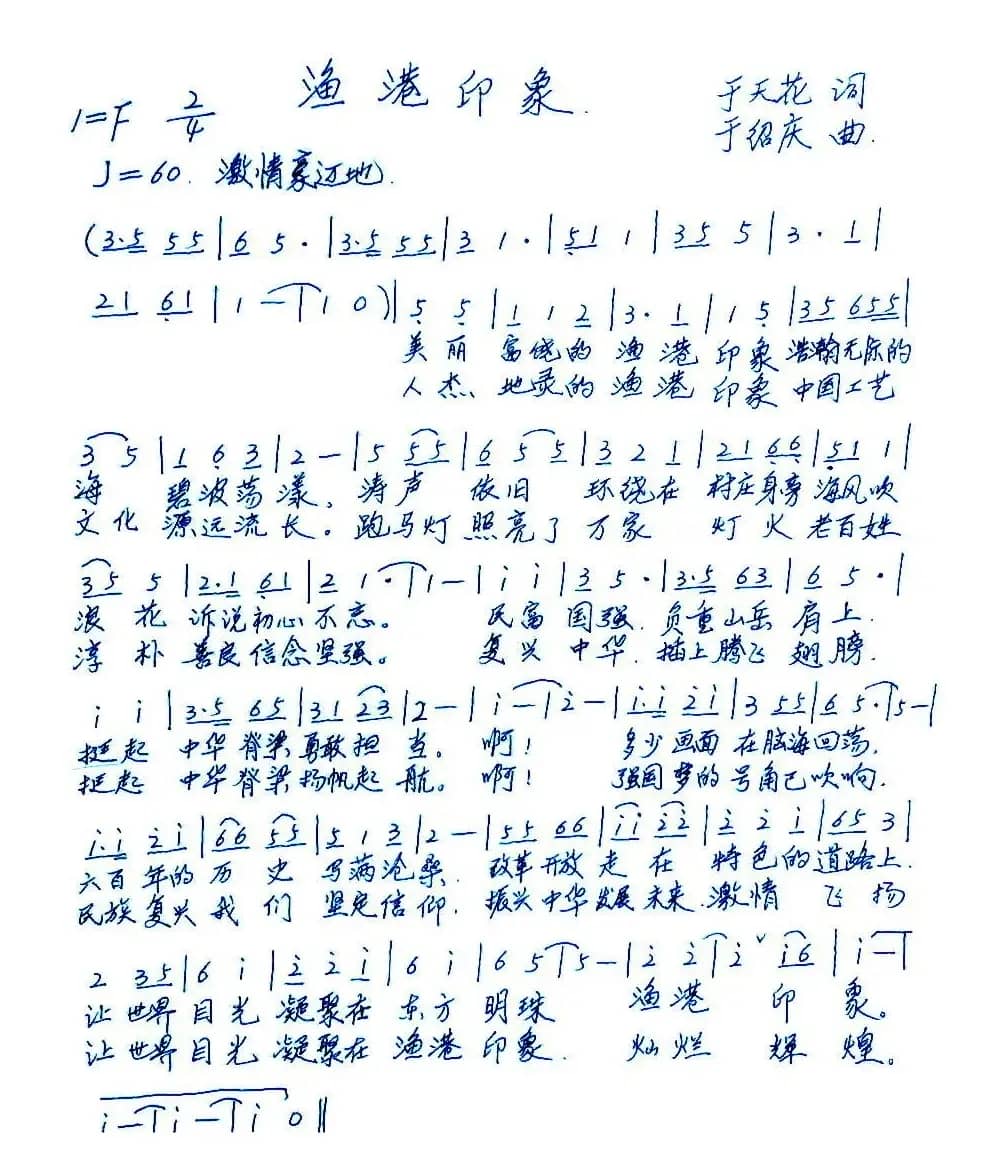 渔港印象.
1=F 2/4
于天花 词
于绍庆 曲.
♩=60. 激情豪迈地.
(3·5 55|6 5·|3·5 55|3 1·|51 1|35 5|3· 1|
21 61|1 —|1 0)|5 5|1 1 2|3· 1|1 5|35 655|
美丽 富饶的 渔港 印象 浩瀚无际的
人杰、地灵的 渔港 印象 中国工艺
3 5|1 6 3|2 —|5 55|6 5 5|3 2 1|21 66|51 1|
海 碧波荡漾, 涛声 依旧 环绕在 村庄身旁 海风吹
文化 源远流长。跑马灯 照亮了 万家 灯火 老百姓
35 5|2·1 61|2 1·|1—|i i|3 5·|3·5 63|6 5·|
浪花 诉说初心不忘。 民富 国强. 负重山岳 肩上.
淳朴 善良信念坚强。 复兴 中华. 插上腾飞 翅膀.
i i|3·5 65|31 23|2—|i —|2̇—|i·i 2̇i|3 55|6 5·|5—|
挺起 中华脊梁勇敢担当。啊! 多少画面 在脑海回荡.
挺起 中华脊梁扬帆起航。啊! 强国梦的 号角已吹响.
i·i 2̇i|66 55|5 1 3|2 —|55 66|ii 2̇2̇|2̇ 2̇ i|65 3|
六百年的 历史 写满沧桑. 改革开放 走在 特色的道路上.
民族复兴 我们 坚定信仰. 振兴中华发展未来.激情 飞扬
2 35|6 i|2̇ 2̇ i|6 i|6 5|5—|2̇ 2̇|2̇ ˅ i6|i—|
让世界目光 凝聚在 东方 明珠 渔港 印象。
让世界目光 凝聚在 渔港 印象. 灿烂 辉煌。
i—|i—|i 0‖